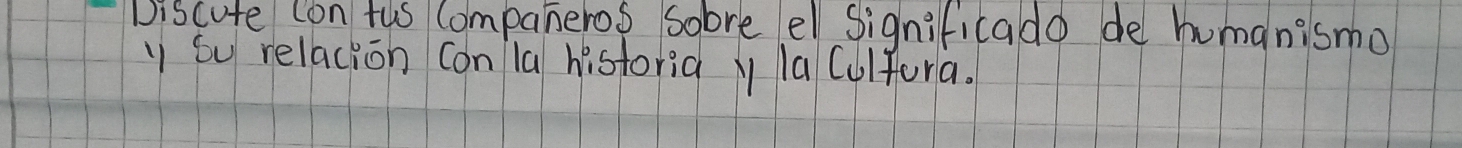 Discute con tus compañeros sobre el significado de humanismo
y su relación con la historia y la cultura.